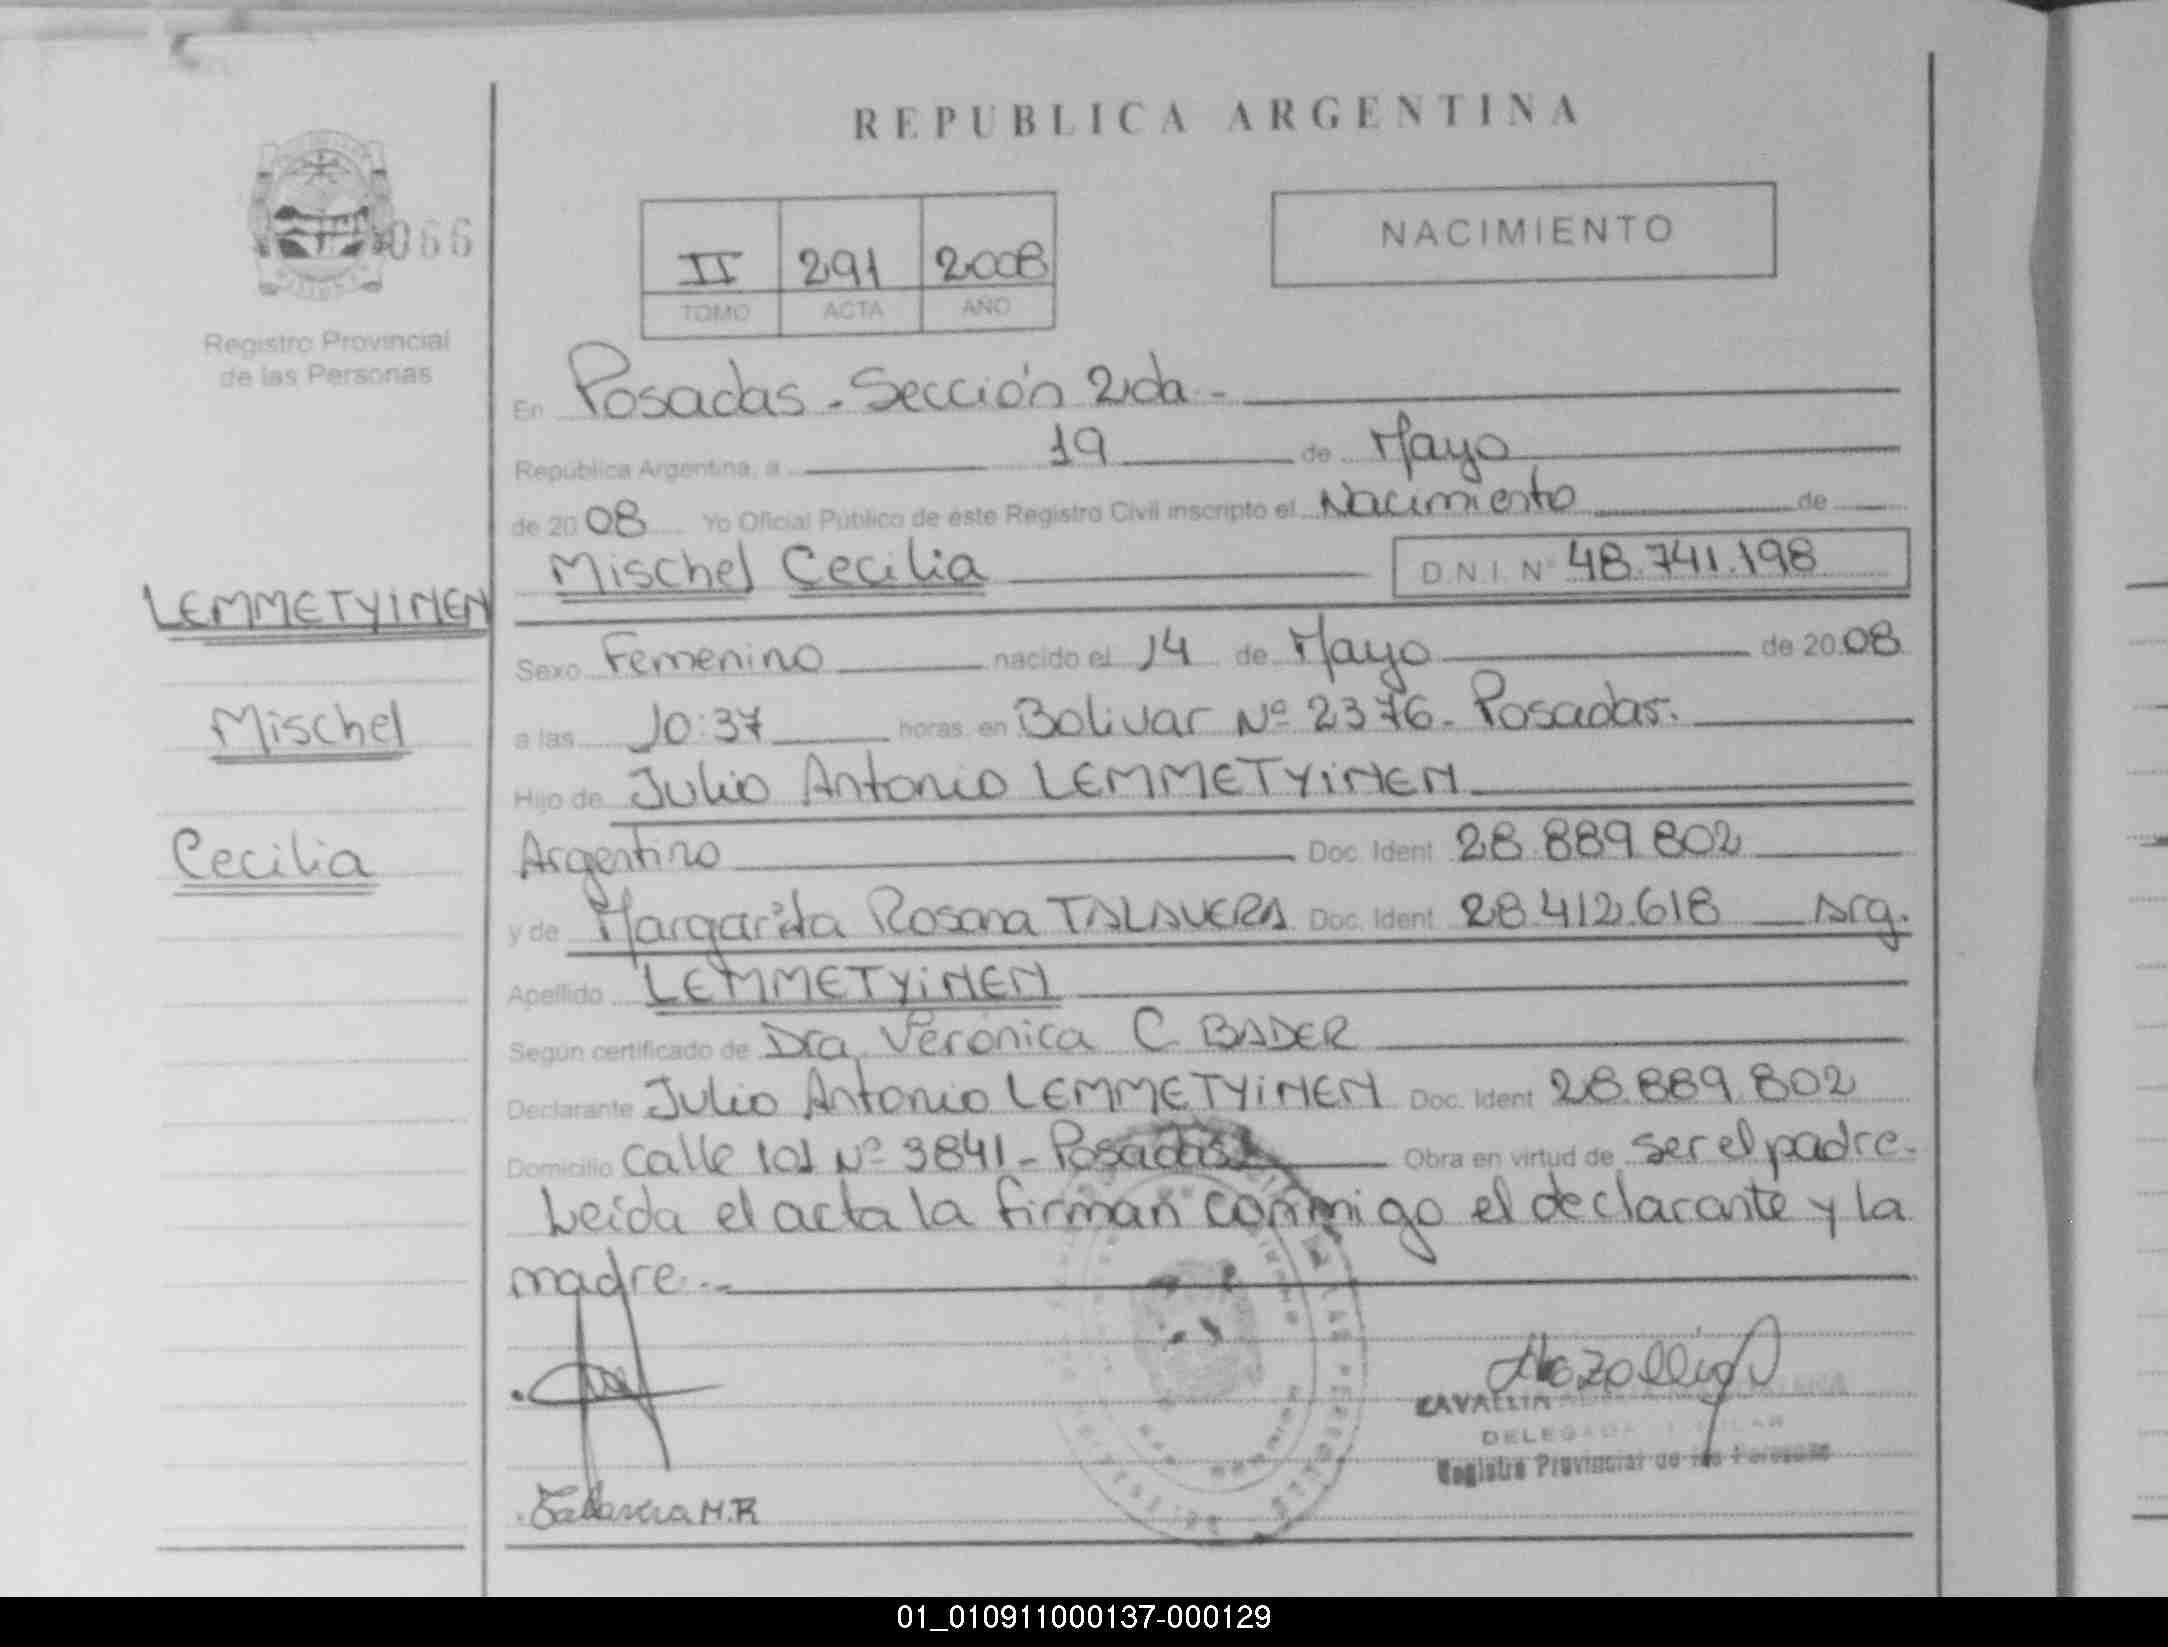 REPUBLICA ARGENTINA
066
Registro Provincial
de las Personas
II 291 2008
TOMO ACTA AÑO
NACIMIENTO
LEMMETYINEN
Mischel
Cecilia
En Posadas - Sección 2da -
República Argentina, a 19 de Mayo
de 2008 Yo Oficial Público de este Registro Civil inscripto el Nacimiento de
Mischel Cecilia D.N.I. Nº 48.741.198
Sexo Femenino nacido el 14 de Mayo de 2008
a las 10:37 horas en Bolivar Nº 2376 - Posadas.
Hijo de Julio Antonio LEMMETYINEN
Argentino Doc. Ident 28.889.802
y de Margarita Rosana TALAVERA Doc. Ident 28.412.618 Arg.
Apellido LEMMETYINEN
Según certificado de Dra. Verónica C. BADER
Declarante Julio Antonio LEMMETYINEN Doc. Ident 28.889.802
Domicilio Calle 101 Nº 3841 - Posadas Obra en virtud de ser el padre.
Leída el acta la firman conmigo el declarante y la
madre.-
CAVALLIN
DELEGADA
Registro Provincial de las Personas
Talavera M.R
01_010911000137-000129